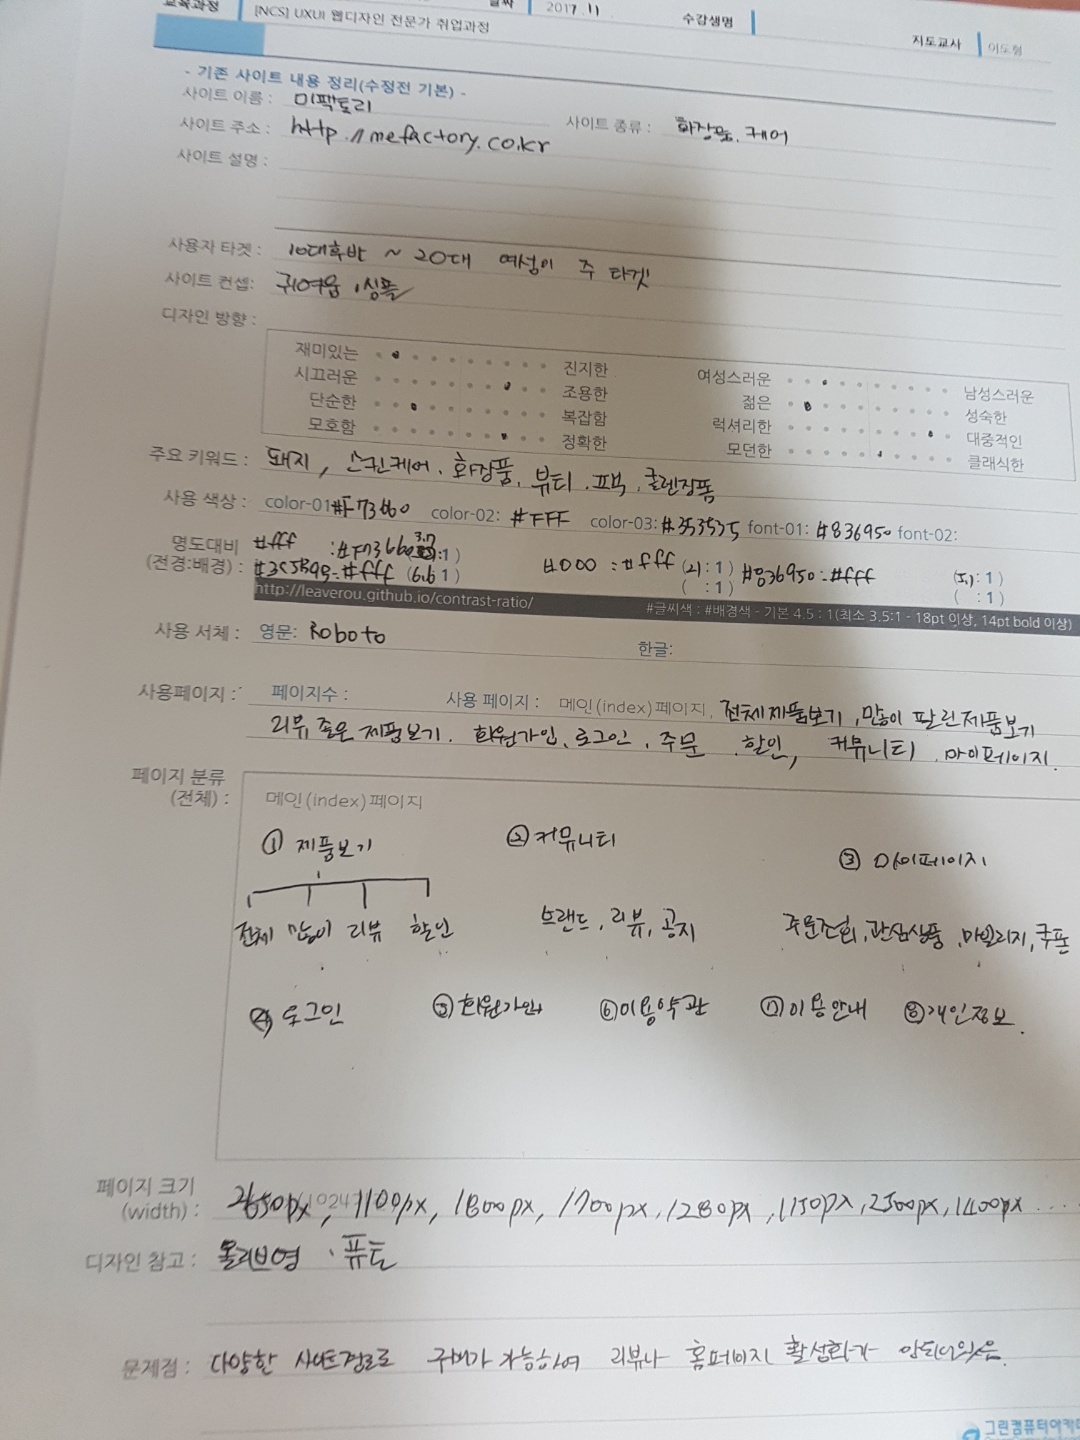 교육과정 [NCS] UXUI 웹디자인 전문가 취업과정 날짜 2017.11 수강생명 지도교사 이도형
- 기존 사이트 내용 정리(수정전 기본) -
사이트 이름 : 미팩토리 사이트 종류 : 화장품, 케어
사이트 주소 : http://mefactory.co.kr
사이트 설명 :
사용자 타겟 : 10대후반 ~ 20대 여성이 주 타겟
사이트 컨셉: 귀여움, 심플
디자인 방향 :
재미있는 진지한 여성스러운 남성스러운
시끄러운 조용한 젊은 성숙한
단순한 복잡함 럭셔리한 대중적인
모호함 정확한 모던한 클래식한
주요 키워드 : 돼지, 스킨케어, 화장품, 뷰티, 팩, 클렌징폼
사용 색상 : color-01 #F73660 color-02: #FFF color-03: #353535 font-01: #836950 font-02:
명도대비 #fff :#F73660 3.7:1) #000 : #fff (21:1) #836950:#fff (5.1:1)
(전경:배경) : :#fff (6.6 1) ( :1) ( :1)
http://leaverou.github.io/contrast-ratio/ #글씨색 : #배경색 - 기본 4.5 : 1(최소 3.5:1 - 18pt 이상, 14pt bold 이상)
사용 서체 : 영문: Roboto 한글:
사용페이지 : 페이지수 : 사용 페이지 : 메인(index)페이지, 전체제품보기, 많이 팔린제품보기
리뷰 좋은 제품보기, 회원가입, 로그인, 주문, 할인, 커뮤니티, 마이페이지.
페이지 분류
(전체) : 메인(index)페이지
① 제품보기 ② 커뮤니티 ③ 마이페이지
전체 많이 리뷰 할인 브랜드, 리뷰, 공지 주문조회, 관심상품, 마일리지, 쿠폰
④ 로그인 ⑤ 회원가입 ⑥ 이용약관 ⑦ 이용안내 ⑧ 개인정보.
페이지 크기
(width) : 2650px, 1100px, 1800px, 1700px, 1280px, 1150px, 2500px, 1400px ....
디자인 참고 : 올리브영, 퓨토
문제점 : 다양한 사이트경로로 구매가 가능하여 리뷰나 홈페이지 활성화가 안되어있음.
그린컴퓨터아카데